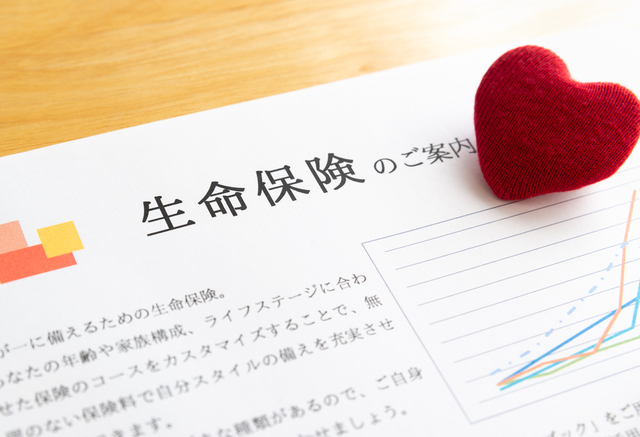 生命保険のご案内
が一に備えるための生命保険。
なたの年齢や家族構成、ライフステージに合わ
せた保険のコースをカスタマイズすることで、無
のない保険料で自分スタイルの備えを充実させ
きます。
な種類があるので、ご自身
せましょう。
ブック」をご用